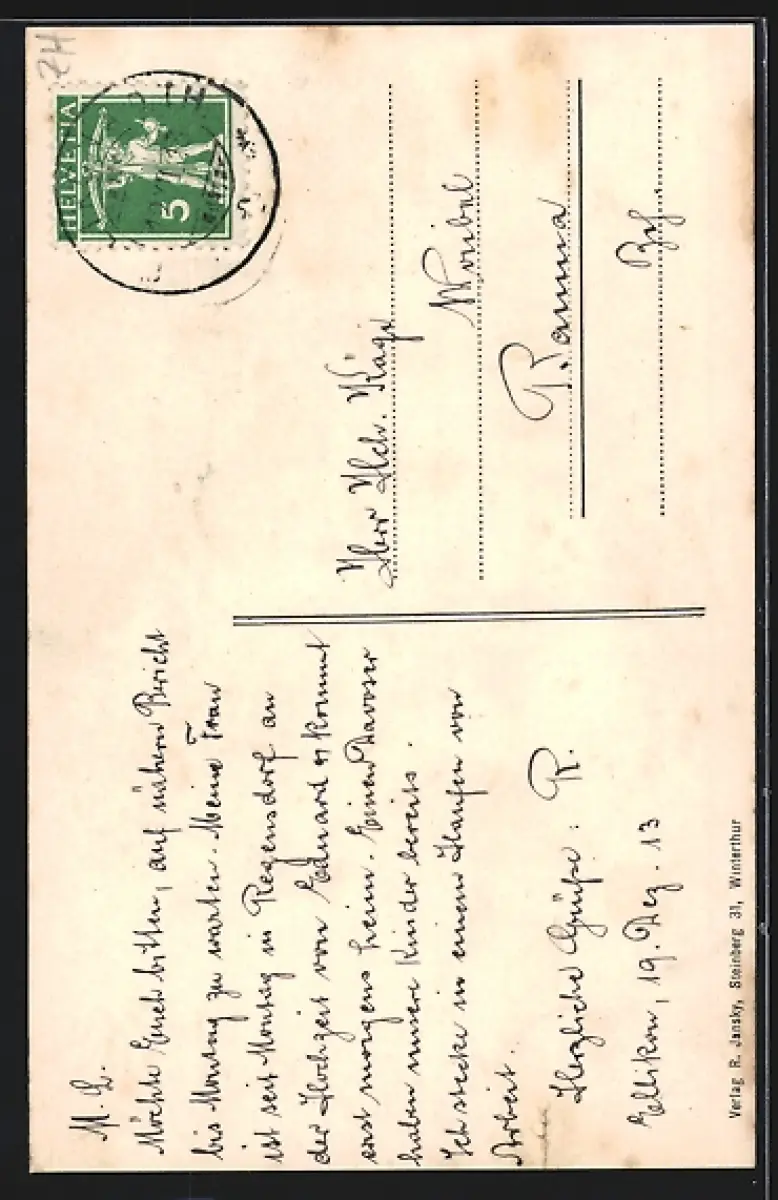 M. L.
Möchte Euch bitten, auf nähern Bericht
bis Montag zu warten. Meine Frau
ist seit Montag in Regensdorf an
der Hochzeit von Eduard & kommt
erst morgens heim. Einen Davoser
haben unsere Kinder bereits.
Ich stecke in einem Haufen von
Arbeit.
Herzliche Grüße: R.
Ellikon, 19. Dez. 13
Herr Hch. Kägi
Bauma
Zch.
HELVETIA
5
ZH
Verlag R. Jansky, Steinberg 31, Winterthur